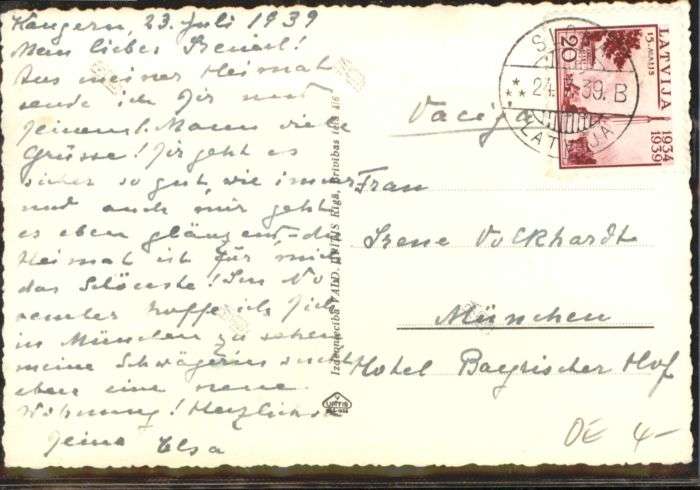 Kangern, 23. Juli 1939
Mein liebes Irenerl!
Aus meiner Heimat
sende ich Dir und
Deinem l. Mann viele
Grüsse! Dir geht es
sicher so gut, wie immer
und auch mir geht
es eben glänzend – die
Heimat ist für mich
das Schönste! Im No
vember hoffe ich Dich
in München zu sehen
meine Schwägerin sucht
eben eine neue
Wohnung! Herzlichst
Deine Elsa
Izdevniecība VALD. UPĪTIS Rīgā, Brīvības ielā
Vācija
Frau
Irene Volkhardt
München
Hotel Bayrischer Hof
LATVIJA
15. MAIJS
20
1934
1939
24. 39. B
LATVIJA
OE 4-